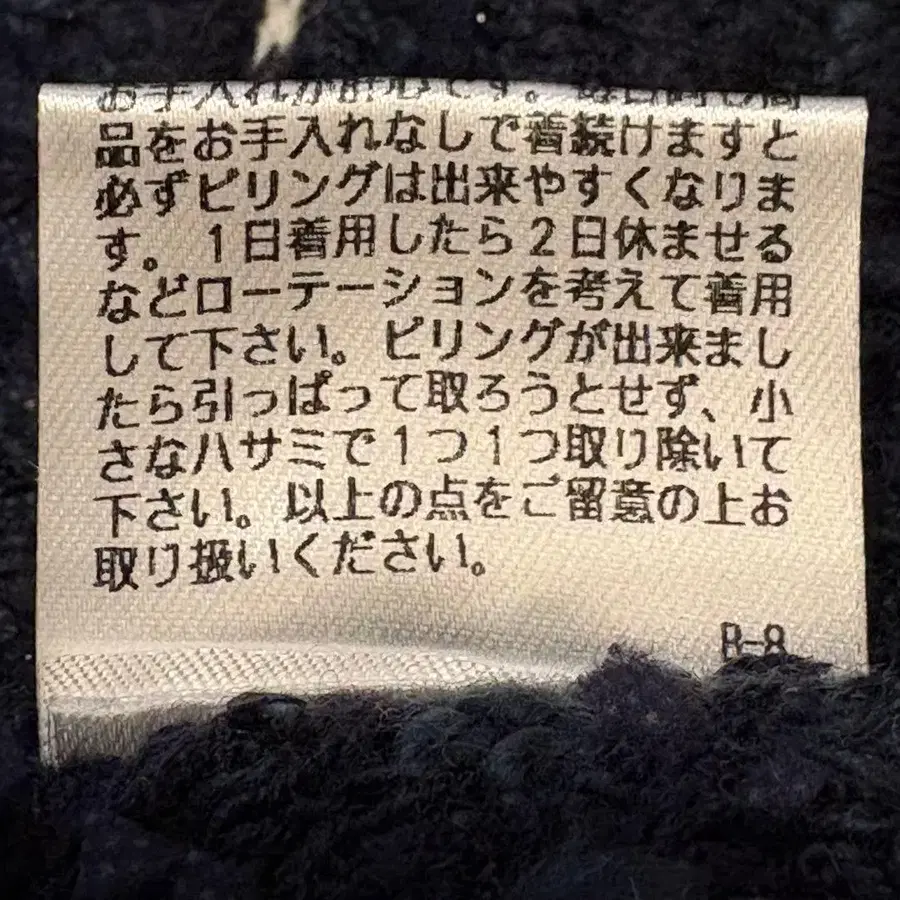 お手入れが肝心です。毎日同じ商
品をお手入れなしで着続けますと
必ずピリングは出来やすくなりま
す。1日着用したら2日休ませる
などローテーションを考えて着用
して下さい。ピリングが出来まし
たら引っぱって取ろうとせず、小
さなハサミで1つ1つ取り除いて
下さい。以上の点をご留意の上お
取り扱いください。
B-8